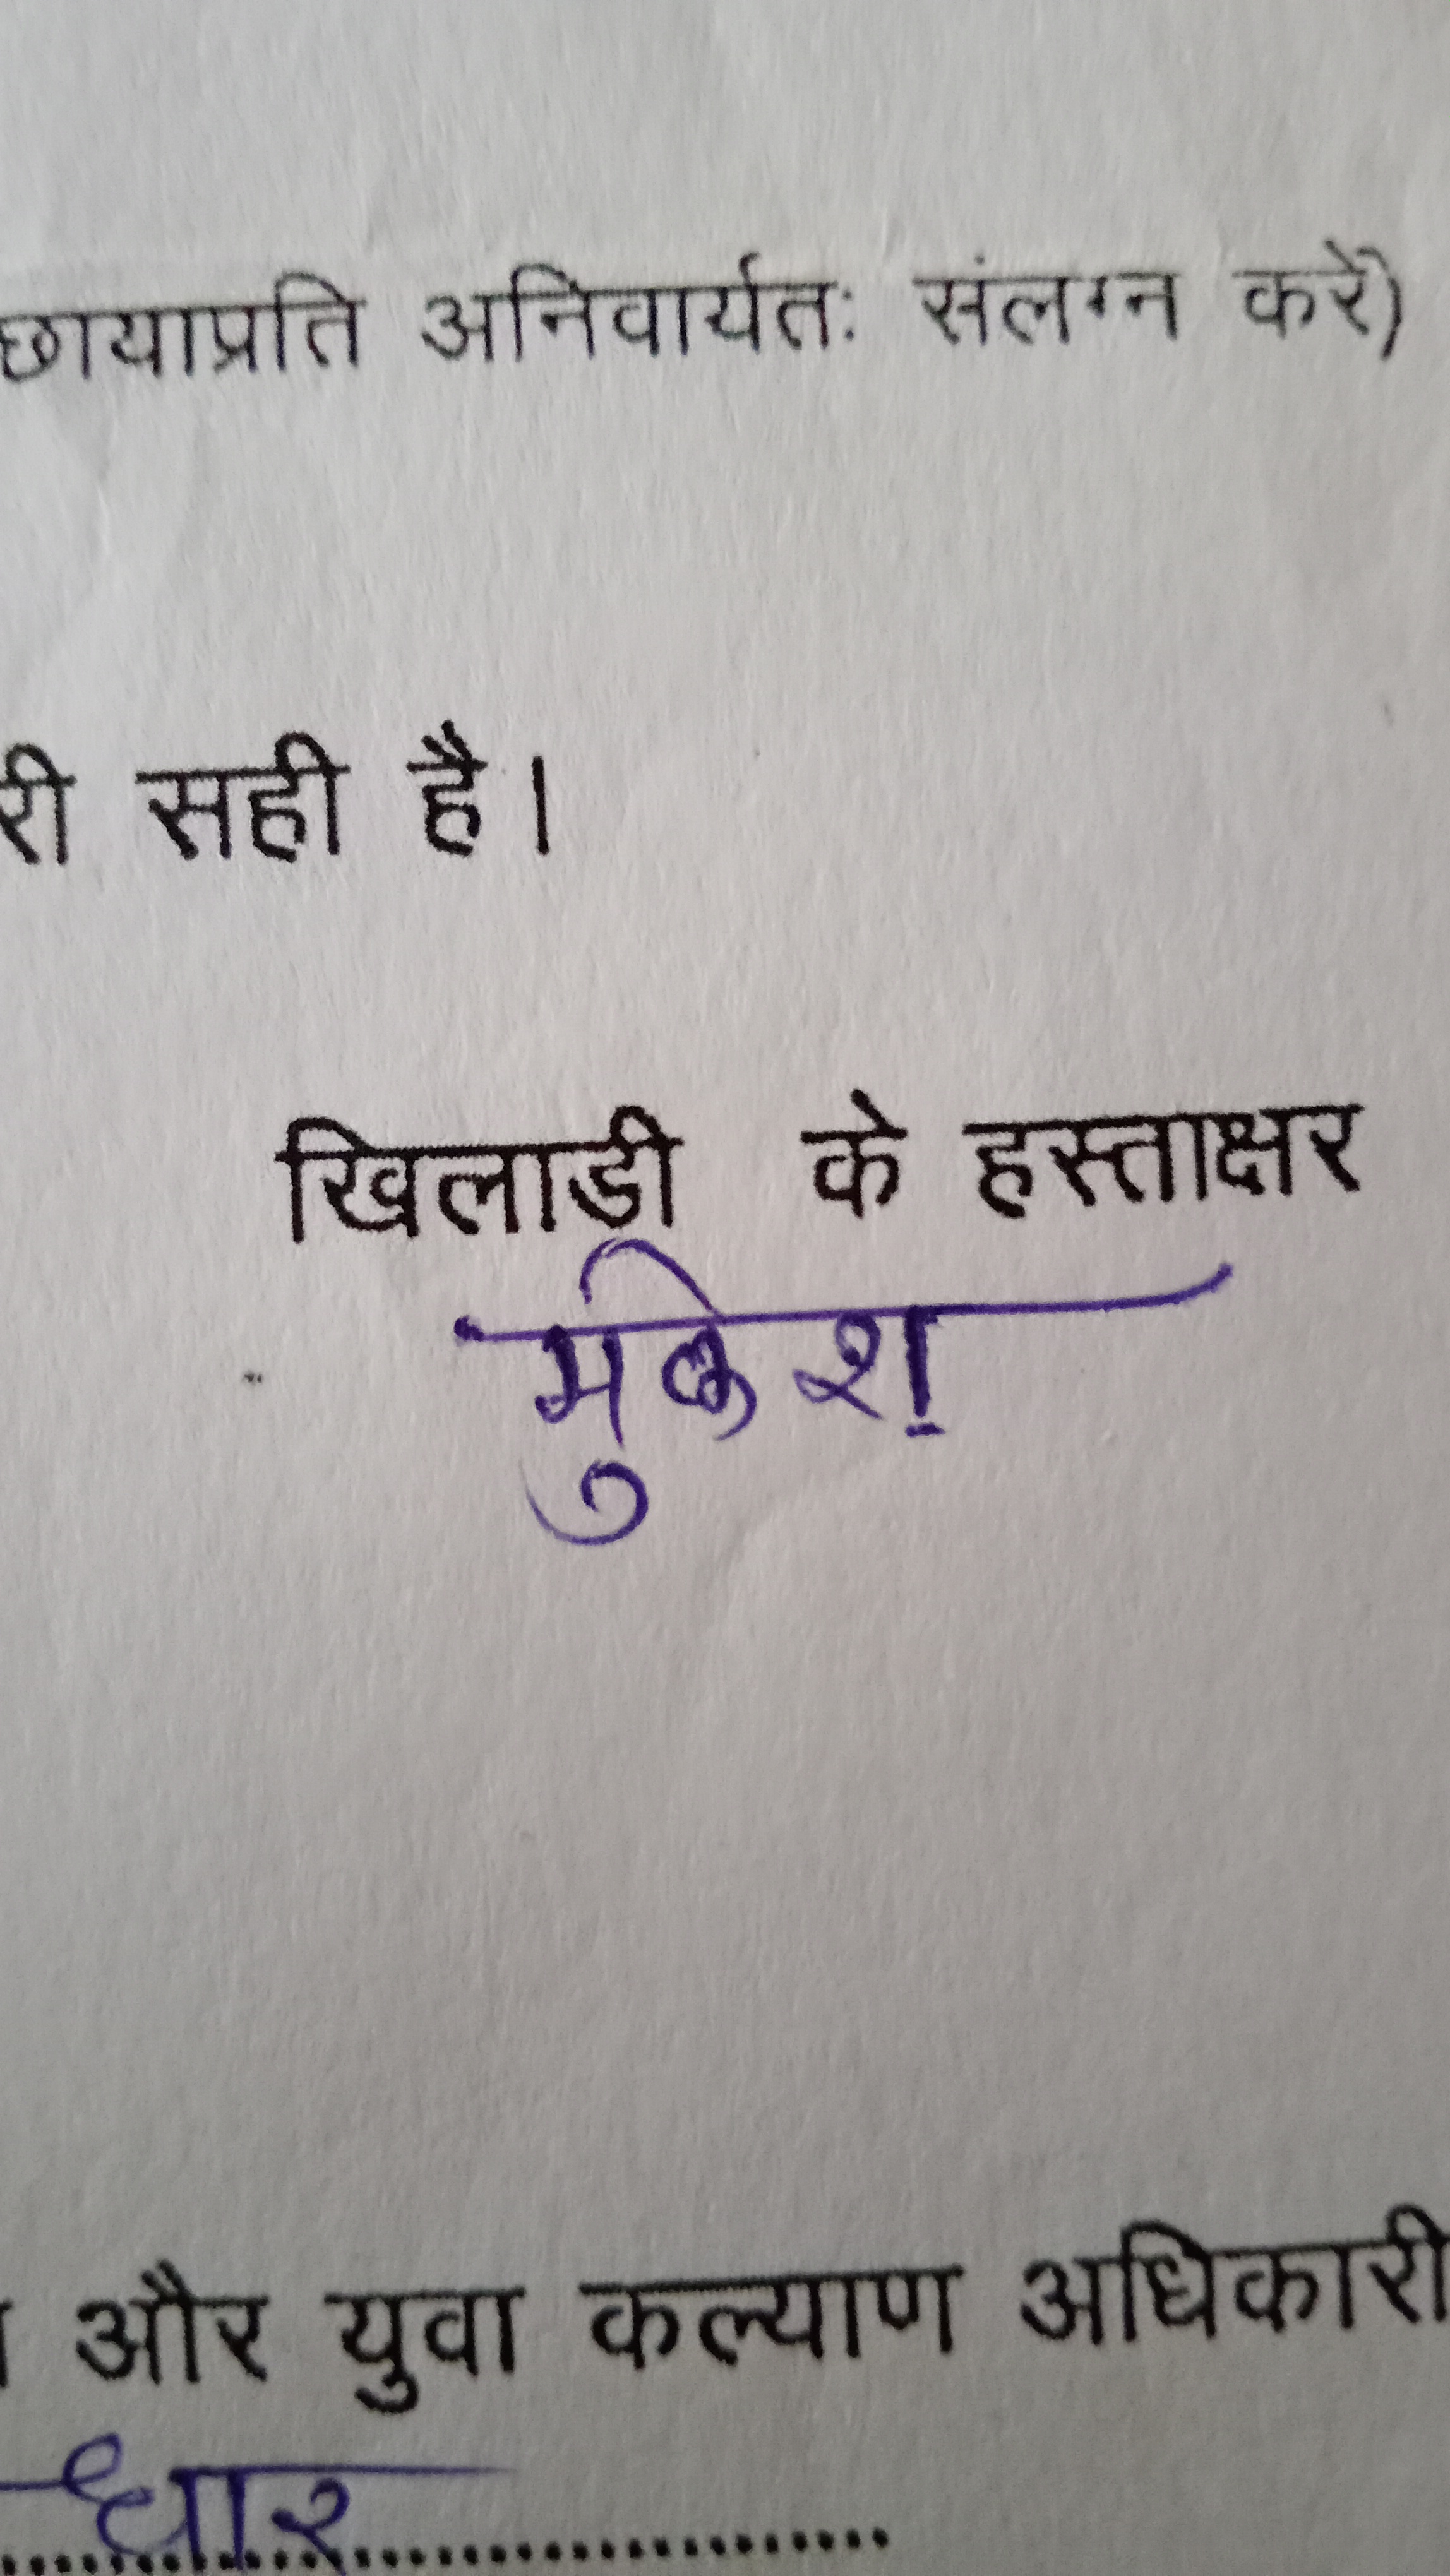 छायाप्रति अनिवार्यतः संलग्न करें)
री सही है।
खिलाडी के हस्ताक्षर
मुकेश
और युवा कल्याण अधिकारी
धार